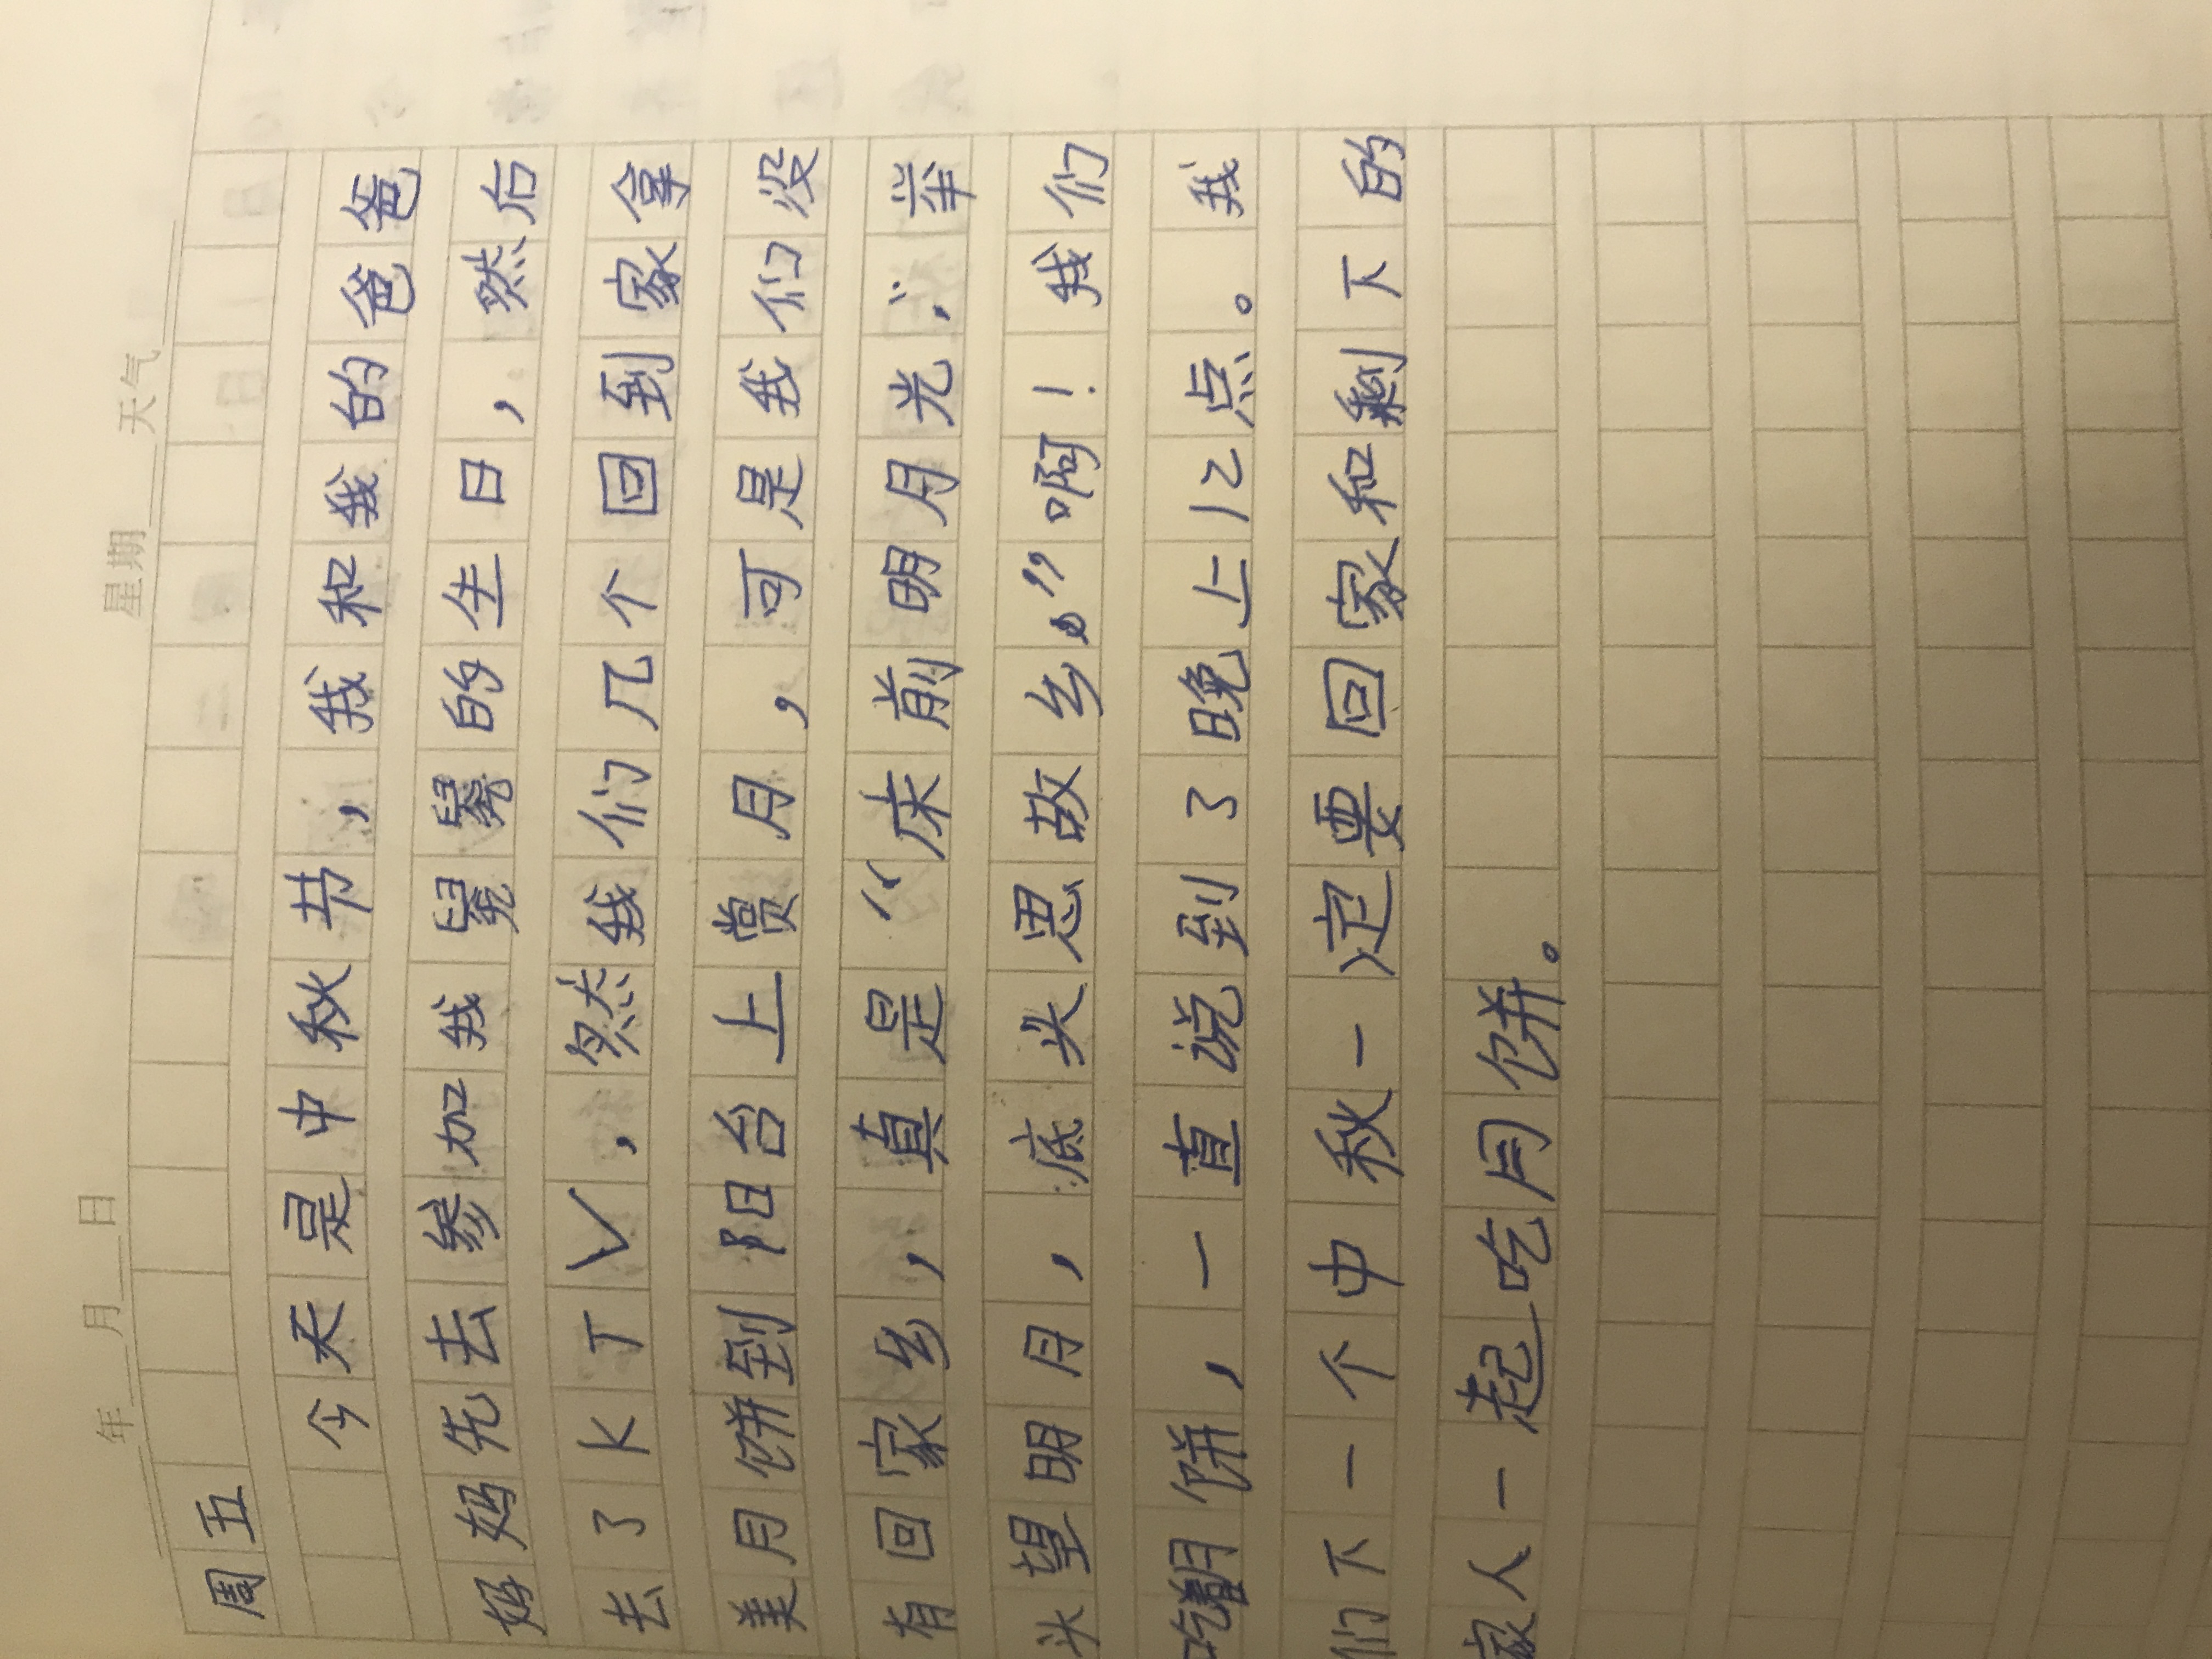 年 月 日 星期 天气
周五
今天是中秋节，我和我的爸爸
妈妈先去参加我舅舅的生日，然后
去了KTV，然我们几个回到家拿
美月饼到阳台上赏月，可是我们没
有回家乡，真是“床前明月光，举
头望明月，底头思故乡。”啊！我们
吃月饼，一直说到了晚上12点。我
们下一个中秋一定要回家和剩下的
家人一起吃月饼。